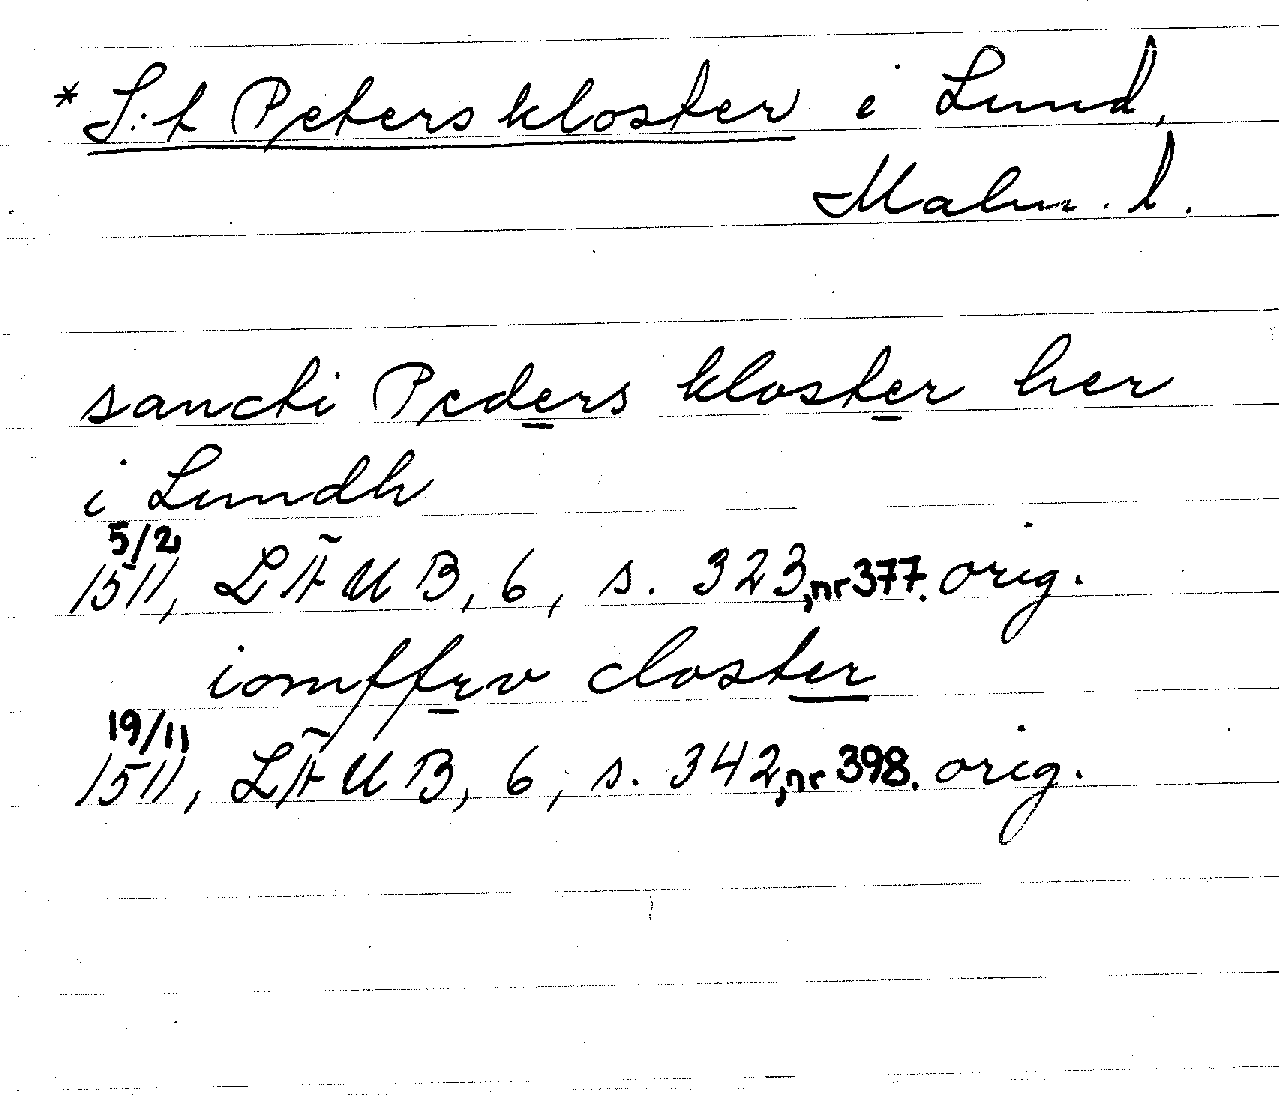 * S:t Peters kloster i Lund,
Malm. l.
sancti Peders kloster her
i Lundh
5/2
1511, LÄUB, 6, s. 323, nr 377. orig.
iomffrv closter
19/11
1511, LÄUB, 6, s. 342, nr 398. orig.